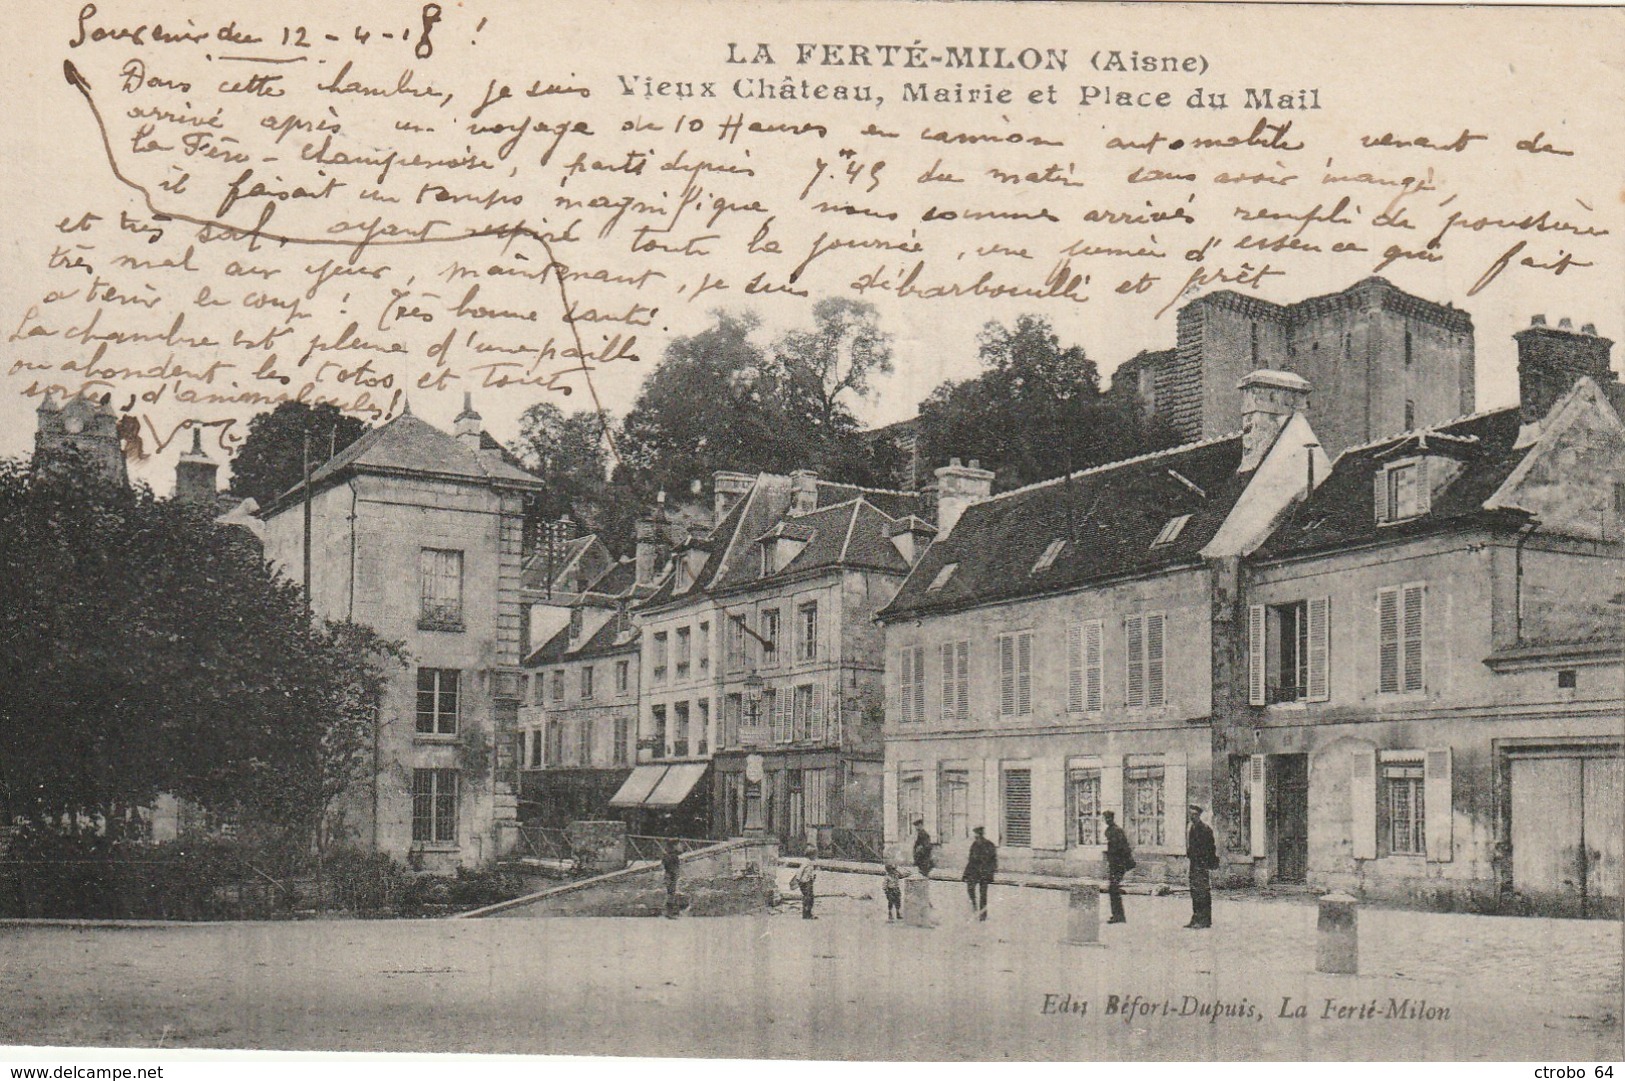 Souvenir du 12-4-18 !
LA FERTÉ-MILON (Aisne)
Vieux Château, Mairie et Place du Mail
Dans cette chambre, je suis
arrivé après un voyage de 10 Heures en camion automobile venant de
la Fère-Champenoise, parti depuis 7.45 du matin sans avoir mangé,
il faisait un temps magnifique, nous sommes arrivés rempli de poussière
et très sal, ayant respiré toute la journée, une fumée d'essence qui fait
très mal aux yeux, maintenant, je suis débarbouillé et prêt
a tenir le coup ! Très bonne santé.
La chambre est pleine d'une paille
ou abondent les totos et toutes
sortes d'animalcules !
Edit Béfort-Dupuis, La Ferté-Milon
www.delcampe.net
ctrobo 64